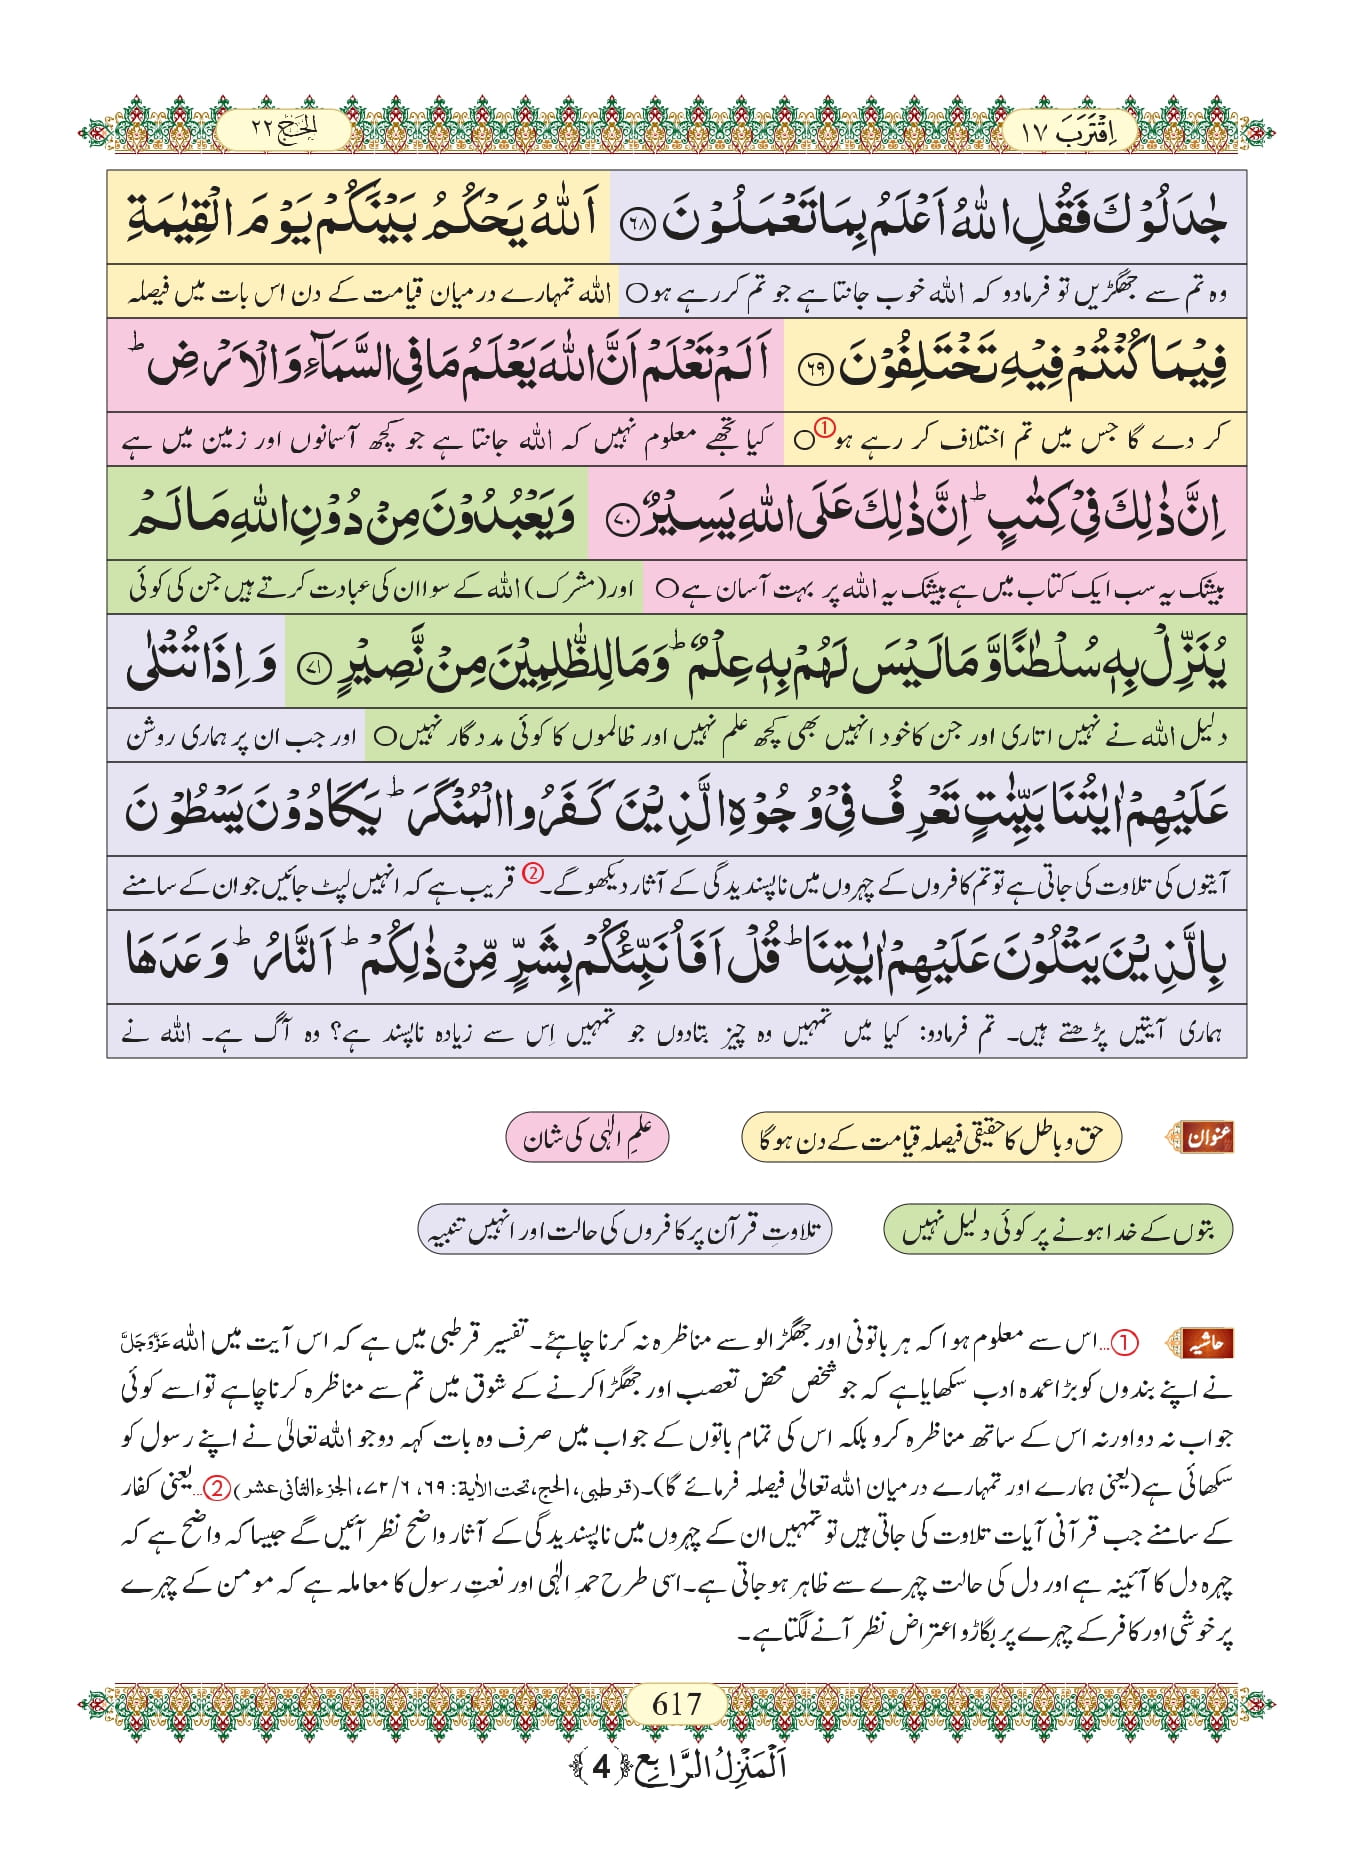 اِقْتَرَبَ ١٧
الحَجّ ٢٢
جٰدَلُوْكَ فَقُلِ اللّٰهُ اَعْلَمُ بِمَا تَعْمَلُوْنَ ﴿٦٨﴾ اَللّٰهُ یَحْكُمُ بَیْنَكُمْ یَوْمَ الْقِیٰمَةِ
وہ تم سے جھگڑیں تو فرمادو کہ اللہ خوب جانتا ہے جو تم کررہے ہو○ اللہ تمہارے درمیان قیامت کے دن اس بات میں فیصلہ
فِیْمَا كُنْتُمْ فِیْهِ تَخْتَلِفُوْنَ ﴿٦٩﴾ اَلَمْ تَعْلَمْ اَنَّ اللّٰهَ یَعْلَمُ مَا فِی السَّمَآءِ وَ الْاَرْضِ ؕ
کر دے گا جس میں تم اختلاف کر رہے ہو① ○ کیا تجھے معلوم نہیں کہ اللہ جانتا ہے جو کچھ آسمانوں اور زمین میں ہے
اِنَّ ذٰلِكَ فِیْ كِتٰبٍ ؕ اِنَّ ذٰلِكَ عَلَی اللّٰهِ یَسِیْرٌ ﴿٧٠﴾ وَ یَعْبُدُوْنَ مِنْ دُوْنِ اللّٰهِ مَا لَمْ
بیشک یہ سب ایک کتاب میں ہے بیشک یہ اللہ پر بہت آسان ہے○ اور (مشرک) اللہ کے سوا ان کی عبادت کرتے ہیں جن کی کوئی
یُنَزِّلْ بِهٖ سُلْطٰنًا وَّ مَا لَیْسَ لَهُمْ بِهٖ عِلْمٌ ؕ وَ مَا لِلظّٰلِمِیْنَ مِنْ نَّصِیْرٍ ﴿٧١﴾ وَ اِذَا تُتْلٰی
دلیل اللہ نے نہیں اتاری اور جن کا خود انہیں بھی کچھ علم نہیں اور ظالموں کا کوئی مددگار نہیں○ اور جب ان پر ہماری روشن
عَلَیْهِمْ اٰیٰتُنَا بَیِّنٰتٍ تَعْرِفُ فِیْ وُجُوْهِ الَّذِیْنَ كَفَرُوا الْمُنْكَرَ ؕ یَكَادُوْنَ یَسْطُوْنَ
آیتوں کی تلاوت کی جاتی ہے تو تم کافروں کے چہروں میں ناپسندیدگی کے آثار دیکھو گے۔② قریب ہے کہ انہیں لپٹ جائیں جو ان کے سامنے
بِالَّذِیْنَ یَتْلُوْنَ عَلَیْهِمْ اٰیٰتِنَا ؕ قُلْ اَفَاُنَبِّئُكُمْ بِشَرٍّ مِّنْ ذٰلِكُمْ ؕ اَلنَّارُ ؕ وَعَدَهَا
ہماری آیتیں پڑھتے ہیں۔ تم فرمادو: کیا میں تمہیں وہ چیز بتادوں جو تمہیں اِس سے زیادہ ناپسند ہے؟ وہ آگ ہے۔ اللہ نے
عنوان حق و باطل کا حقیقی فیصلہ قیامت کے دن ہوگا علمِ الٰہی کی شان
بتوں کے خدا ہونے پر کوئی دلیل نہیں تلاوتِ قرآن پر کافروں کی حالت اور انہیں تنبیہ
حاشیہ ①...اس سے معلوم ہوا کہ ہر باتونی اور جھگڑالو سے مناظرہ نہ کرنا چاہئے۔ تفسیر قرطبی میں ہے کہ اس آیت میں اللہ عَزَّوَجَلَّ
نے اپنے بندوں کو بڑا عمدہ ادب سکھایا ہے کہ جو شخص محض تعصب اور جھگڑا کرنے کے شوق میں تم سے مناظرہ کرنا چاہے تو اسے کوئی
جواب نہ دو اور نہ اس کے ساتھ مناظرہ کرو بلکہ اس کی تمام باتوں کے جواب میں صرف وہ بات کہہ دو جو اللہ تعالیٰ نے اپنے رسول کو
سکھائی ہے (یعنی ہمارے اور تمہارے درمیان اللہ تعالیٰ فیصلہ فرمائے گا)۔ (قرطبی، الحج، تحت الاٰیة: ٦٩، ٦/٧٢، الجزء الثانی عشر) ②...یعنی کفار
کے سامنے جب قرآنی آیات تلاوت کی جاتی ہیں تو تمہیں ان کے چہروں میں ناپسندیدگی کے آثار واضح نظر آئیں گے جیسا کہ واضح ہے کہ
چہرہ دل کا آئینہ ہے اور دل کی حالت چہرے سے ظاہر ہو جاتی ہے۔ اسی طرح حمدِ الٰہی اور نعتِ رسول کا معاملہ ہے کہ مومن کے چہرے
پر خوشی اور کافر کے چہرے پر بگاڑ و اعتراض نظر آنے لگتا ہے۔
617
اَلْمَنْزِلُ الرَّابِع ﴿4﴾